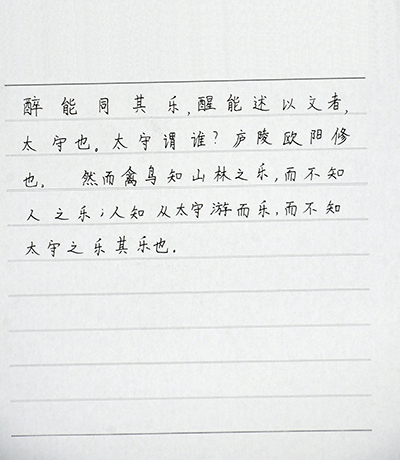 醉能同其乐,醒能述以文者,
太守也。太守谓谁?庐陵欧阳修
也。 然而禽鸟知山林之乐,而不知
人之乐;人知从太守游而乐,而不知
太守之乐其乐也。